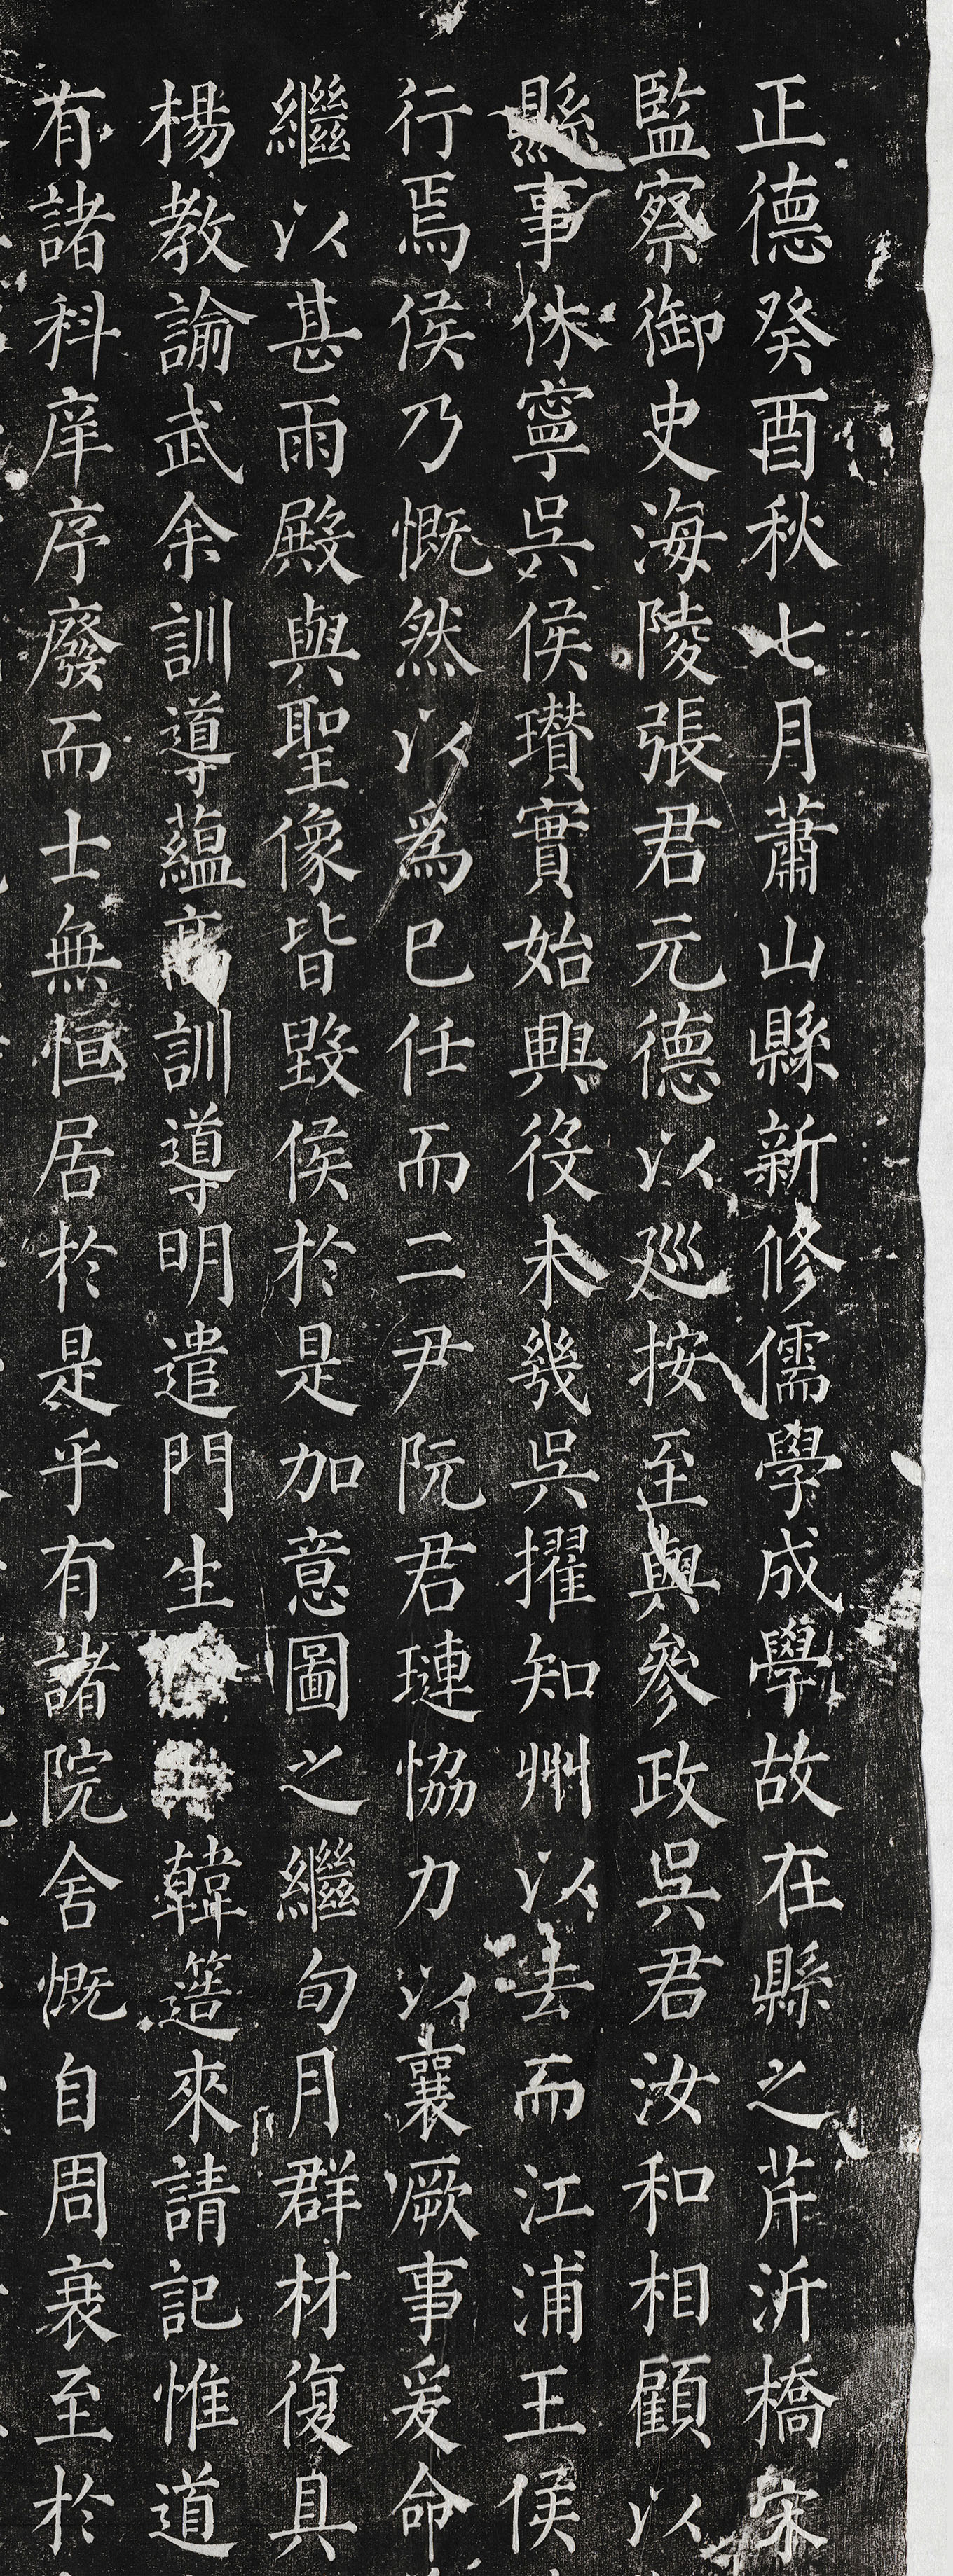 正德癸酉秋七月蕭山縣新修儒學成學故在縣之芹沂橋宋
監察御史海陵張君元德以廵按至與參政吳君汝和相顧以
縣事休寧吳侯瓚實始興役未幾吳擢知州以去而江浦王侯
行焉侯乃慨然以為已任而二尹阮君璉恊力以襄厥事爰命
繼以甚雨殿與聖像皆毀侯於是加意圖之繼旬月群材復具
楊教諭武余訓導蘊高訓導明遣門生韓簉來請記惟道
有諸科庠序廢而士無恒居於是乎有諸院舍慨自周衰至於